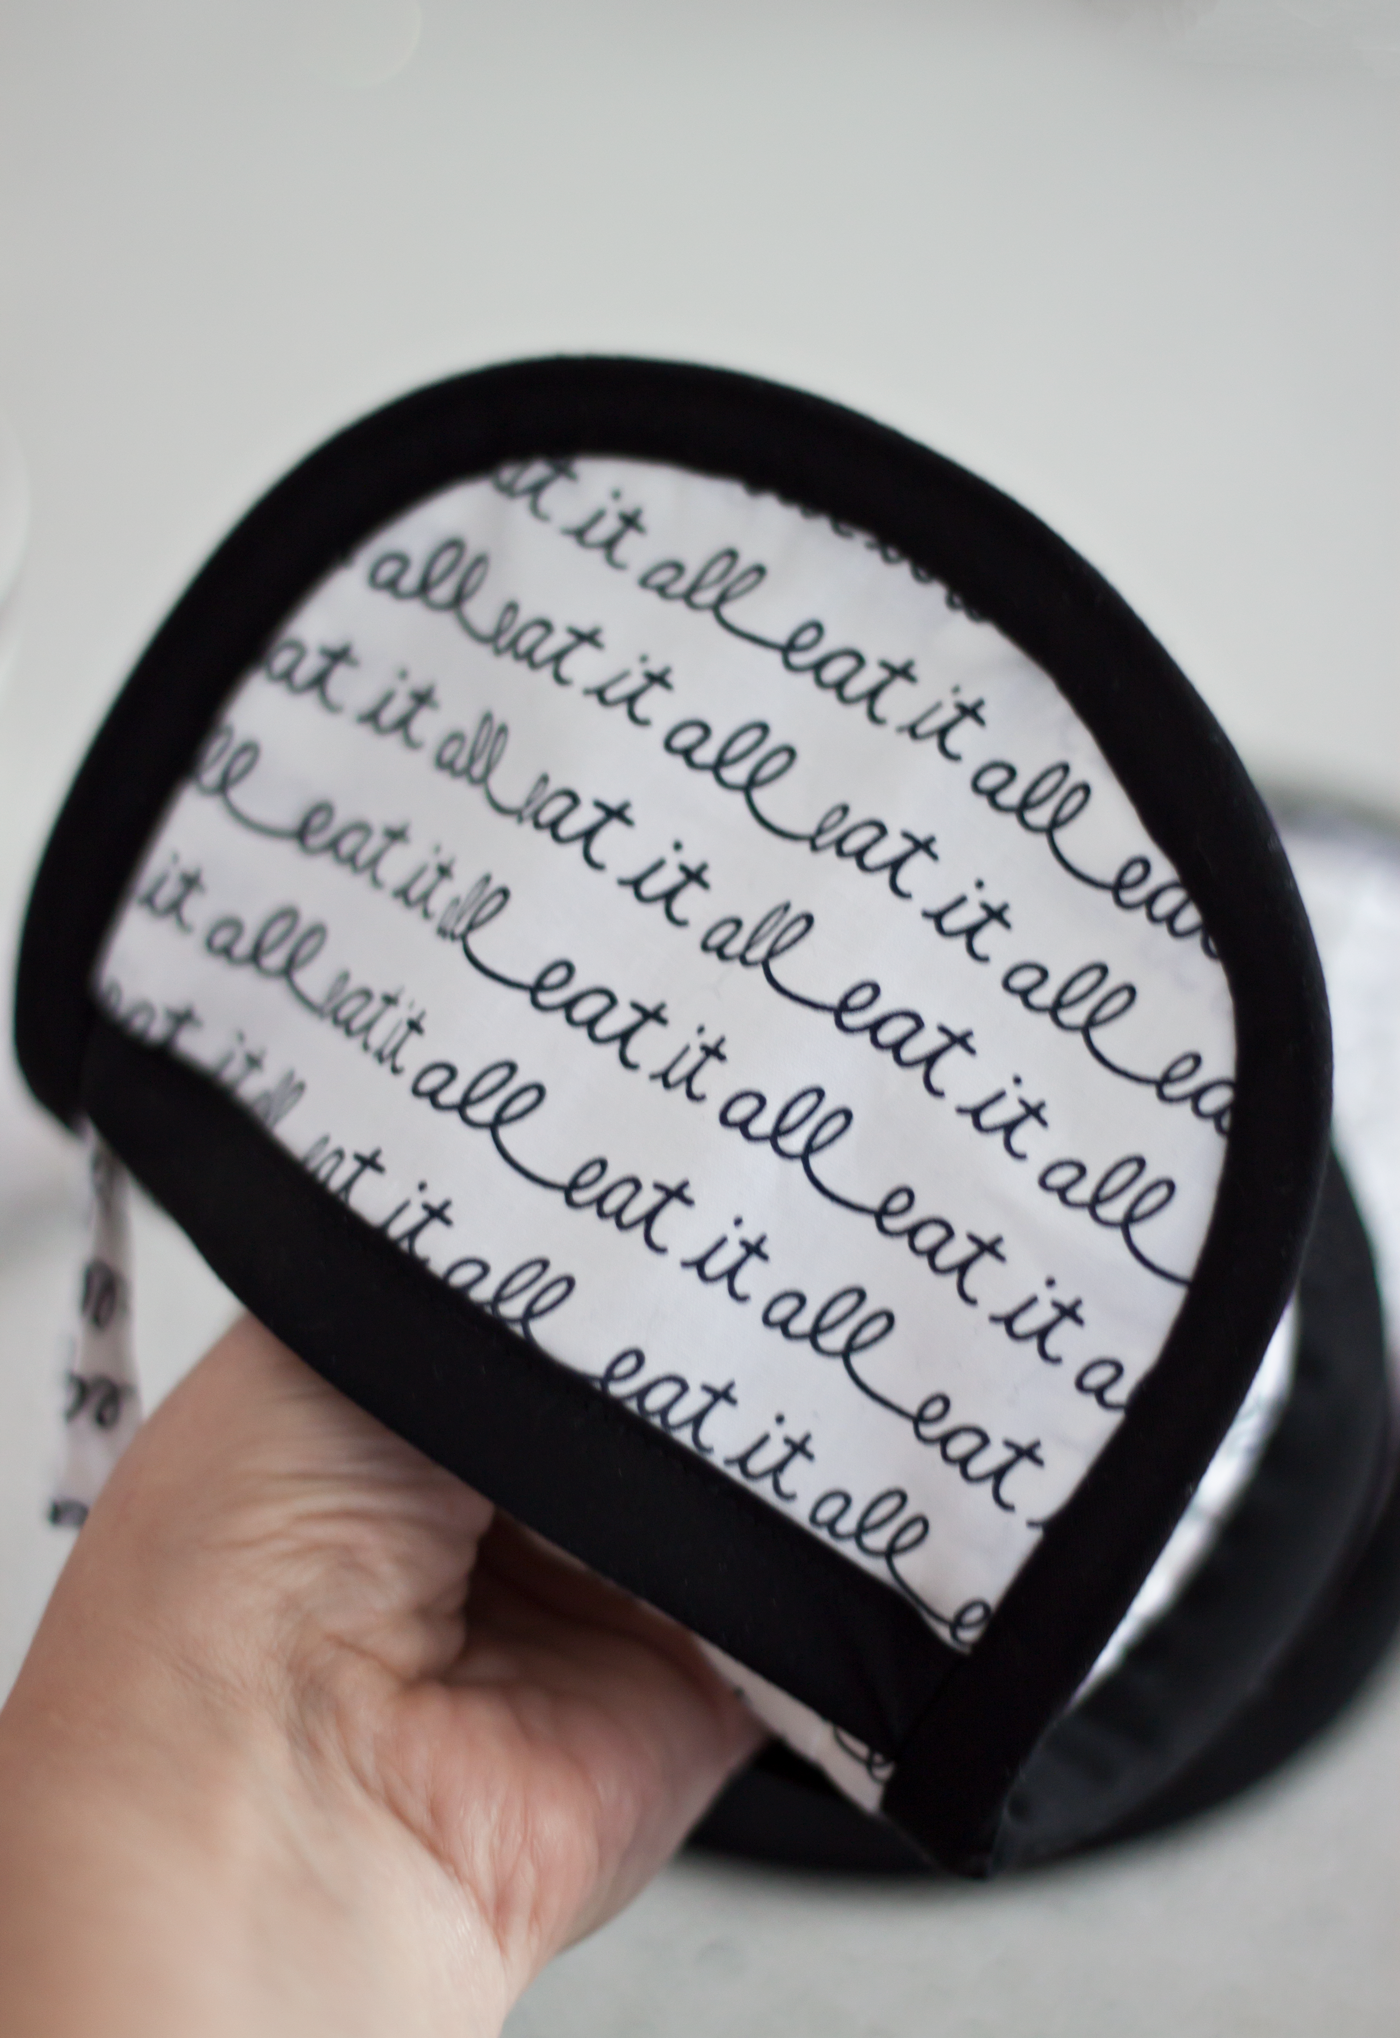 at it all eat it all eat
all eat it all eat it all ea
at it all eat it all eat it all
ll eat it all eat it all eat it a
it all eat it all eat it all eat
eat it all eat it all eat it all e